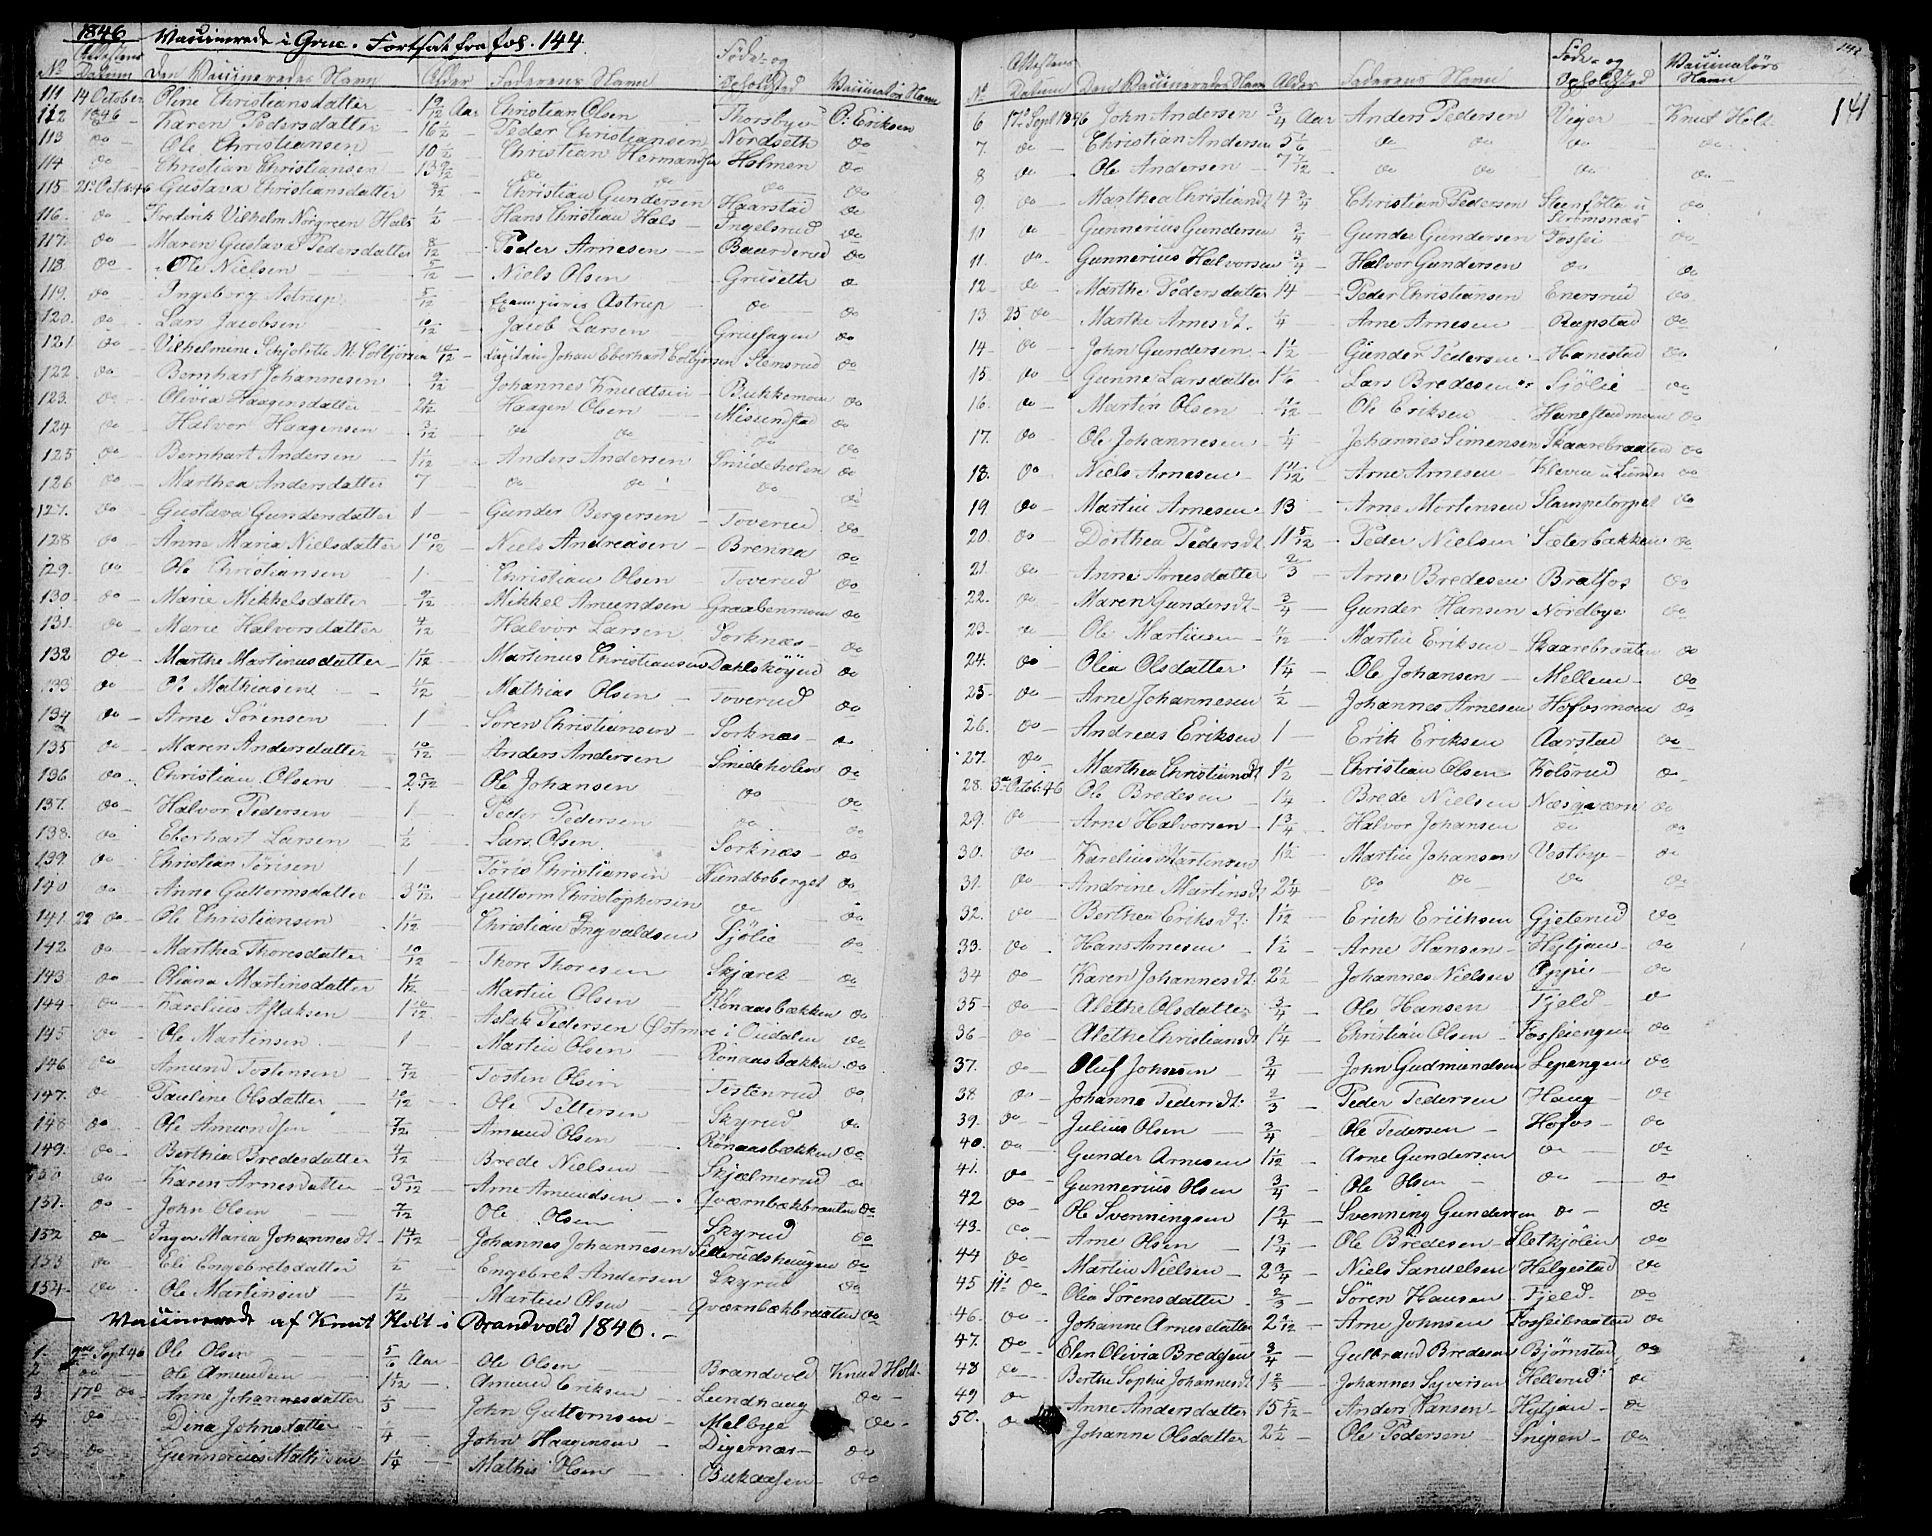 1846 Vaccinerede i Grue. Fortsat fra fol. 144.
No Attestens Datum Den Vaccineredes Navn Alder Faderens Navn Føde- og Opholdsted Vaccinatørs Navn
111 14 October Oline Christiansdatter 10/12 Aar Christian Olsen Thorsbye O. Eriksen
112 1846 Karen Pedersdatter 16 1/2 Peder Christiansen Nordseth do
113 do Ole Christiansen 10 1/2 Christian Hermandsen Holmen do
114 do Christian Christiansen 13 do do do
115. 21 Octob: 46 Gustava Christiansdatter Christian Gundersen Haarstad do
116. do Frederik Vilhelm Nørgreen Hals 1/2 Hans Christian Hals Ingelsrud do
117. do Maren Gustava Pedersdatter 8/12 Peder Arnesen Baarderud do
118. do Ole Nielsen Niels Olsen Gruseth do
119. do Ingeborg Astrup 5/12 Astrup do do
120. do Lars Jacobsen 10/12 Jacob Larsen Gruefagen do
121. do Vilhelmine M. Colbjørnsen Capitain Johan Eberhart Colbjørnsen Stensrud do
122. do Bernhart Johannesen 9/12 Johannes Knudtsen Bukkemoen do
123. do Olivia Haagensdatter 2 1/12 Haagen Olsen Missundstad do
124 do Halvor Haagensen 3/12 do do do do
125 do Bernhart Andersen 1 1/12 Anders Andersen Smideholen do
126 do Marthea Andersdatter 7 do do do do
127. do Gustava Gundersdatter 1 Gunder Bergersen Toverud do
128 do Anne Maria Nielsdatter 1 10/12 Niels Andreasen Brenna do
129. do Ole Christiansen 1 Christian Olsen Toverud do
130. do Marie Mikkelsdatter 9/12 Mikkel Amundsen Graabenmoen do
131. do Marie Halvorsdatter 4/12 Halvor Larsen Sorknæs do
132 do Marthe Martinusdatter 1 1/12 Martinus Christiansen do
133 do Ole Mathiasen 11/12 Mathias Olsen Toverud do
134 do Arne Sørensen 1 Søren Christiansen Sorknæs do
135 do Maren Andersdatter 10/12 Anders Andersen Smideholen do
136 do Christian Olsen Ole Johansen do do
137. do Halvor Pedersen 1 Peder Pedersen do do
138. do Eberhart Larsen 1/2 Lars Olsen Sorknæs do
139. do Christian Tørisen 1 Tøris Christiansen Kundboberget do
140 do Anne Guttormsdatter 3 10/12 Guttorm Christophersen do do
141. 22 do Ole Christiansen 1 1/12 Christian Ingvaldsen Sjølie do
142 do Marthea Thoresdatter 10/12 Thore Thoresen Skjæret do
143 do Oliana Martinsdatter 1 1/12 Martin Olsen Rønaasbækken do
144 do Karelius Aslaksen 1 10/12 Aslak Pedersen Østmoe i Oudalen do
145 do Ole Martinsen 1 Martin Olsen Rønaasbækken do
146 do Amund Tostensen 7/12 Tosten Olsen Tostenrud do
147. do Pauline Olsdatter 10/12 Ole Pettersen Skyrud do
148 do Ole Amundsen 7/12 Amund Olsen Rønaasbækken do
149. do Berthea Bredesdatter 4/12 Brede Nielsen Skjælmerud do
150 do Karen Arnesdatter Arne Amundsen Qværnbækbraaten do
151. do John Olsen 7/12 Ole Olsen Skyrud do
152 do Inger Maria Johannesdt. Johannes Johannesen do
153 do Eli Engebretsdatter 1/2 Engebret Andersen Skyrud do
154 do Ole Martinsen 1 1/2 Martin Olsen Qværnbækbraaten do
Vaccinerede af Knut Holt i Brandvold 1846.
1. Sept 46 Ole Olsen 5/6 Aar Ole Olsen Brandvold Knud Holt
2 do Ole Amundsen 1 1/12 Amund Eriksen Lundhaug do
3 17d do Anne Johannesdatter John Guttormsen Melbye do
4 do Dina Johnsdatter 4 John Haagensen Digernæs do
5 do Gunnerius Mathisen 1 1/4 Mathis Olsen do
141
No Attestens Datum Den Vaccineredes Navn Alder Faderens Navn Føde- og Opholdsted Vaccinatørs Navn
6 17d Sept 1846 John Andersen 3/4 Aar Anders Pedersen Viger Knut Holt
7. do Christian Andersen 5 5/6 do do do do
8 do Ole Andersen 7 7/12 do do do do
9 do Marthea Christiansdt 4 3/4 Christian Pedersen Steenfotte u Strømsnæs do
11 do Gunnerius Gundersen 3/4 Gunder Gundersen Fossei do
11. do Gunnerius Halvorsen 3/4 Halvor Gundersen do do
12 do Marthe Pedersdatter 14 Peder Christiansen Enersrud do
13 25 do Marthe Arnesdt. 1/4 Arne Arnesen Rapstad do
14 do John Gundersen 1 1/2 Gunder Pedersen Hanestad do
15. do Gunne Larsdatter 1 1/6 Lars Bredesen Sjölie do
16. do Martin Olsen 11/12 Ole Eriksen Hanestadmoen do
17. do Ole Johannesen 1/4 Johannes Simensen Skaarebraaten do
18. do Niels Arnesen 1 11/12 Arne Arnesen Kleven u Lunder do
19 do Martin Arnesen 13 Arne Mortensen Stampetorpet do
20 do Dorthea Pedersdt. 11 5/12 Peder Nielsen Sæterbækken do
21. do Anne Arnesdatter 2/3 Arne Bredesen Bratfos do
22. do Maren Gundersdt. 3/4 Gunder Hansen Nordbye do
23 do Ole Martinsen 11/12 Martin Eriksen Skaarebraaten do
24. do Olia Olsdatter 1 1/4 Ole Johansen Mellem do
25 do Arne Johannesen 1/2 Johannes Arnesen Hofosmoen do
26. do Andreas Eriksen 1 Erik Eriksen Aarstad do
27. do Marthea Christiansdt 1 1/2 Christian Olsen Kolsrud do
28. 3die Octob: 46 Ole Bredesen 1 1/4 Brede Nielsen Næsqværn do
29 do Arne Halvorsen 1 3/4 Halvor Johansen do do
30. do Karelius Martinsen 1 1/2 Martin Johansen Vestbye do
31. do Andrine Martinsdt. 2 1/4 do do do do
32. do Berthea Eriksdt. 1 1/12 Erich Eriksen Gjeterud do
33. do Hans Arnesen 1 1/2 Arne Hansen Hytjan do
34 do Karen Johannesdt. 2 1/2 Johannes Nielsen Oppie do
35 do Alethe Olsdatter 3/4 Ole Hansen Fjeld do
36 do Alethe Christiansdt 1 1/4 Christian Olsen Fosseiengen do
37. do Oluf Johnsen 3/4 John Gudmundsen Sepengen do
38 do Johanne Pedersdt. 2/3 Peder Pedersen Haug do
39. do Julius Olsen 3/4 Ole Pedersen Hofos do
40. do Gunder Arnesen 1 1/12 Arne Gundersen do do
41. do Gunnerius Olsen 3/4 Ole Olsen do do
42 do Ole Svenningsen 1 3/4 Svenning Gundersen do do
43. do Arne Olsen 1 3/4 Ole Bredesen Sletkjølen do
44 do Martin Nielsen 2 3/4 Niels Samuelsen Helgestad do
45 11t do Olia Sørensdatter 2/3 Søren Hansen Fjeld do
46. do Johanne Arnesdatter Arne Johnsen Fosseibraaten do
47. do Elen Olivia Bredesen 3/4 Gulbrand Bredesen Bjørnstad do
48 do Berthe Sophie Johannesdt 1 2/3 Johannes Syversen Hellerud do
49 do Anne Andersdatter 15 5/12 Anders Hansen Hytjan do
50. do Johanne Olsdatter 2 1/2 Ole Pedersen Snipen do